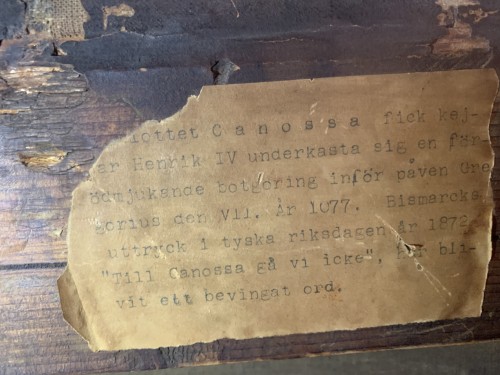 lottet C a n o s s a fick kej-
ar Henrik IV underkasta sig en för
ödmjukande botgöring inför påven Gre
gorius den VII. År 1077. Bismarcks
uttryck i tyska riksdagen år 1872
"Till Canossa gå vi icke", har bli-
vit ett bevingat ord.